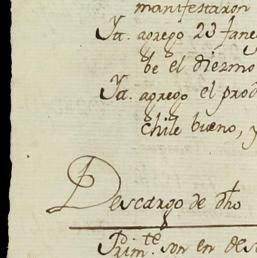 manifestaron
Ytt. agrego 23 fane
be el diezmo
Ytt. agrego el prod
chile bueno, y
Descargo de dho
Prim.te son en des